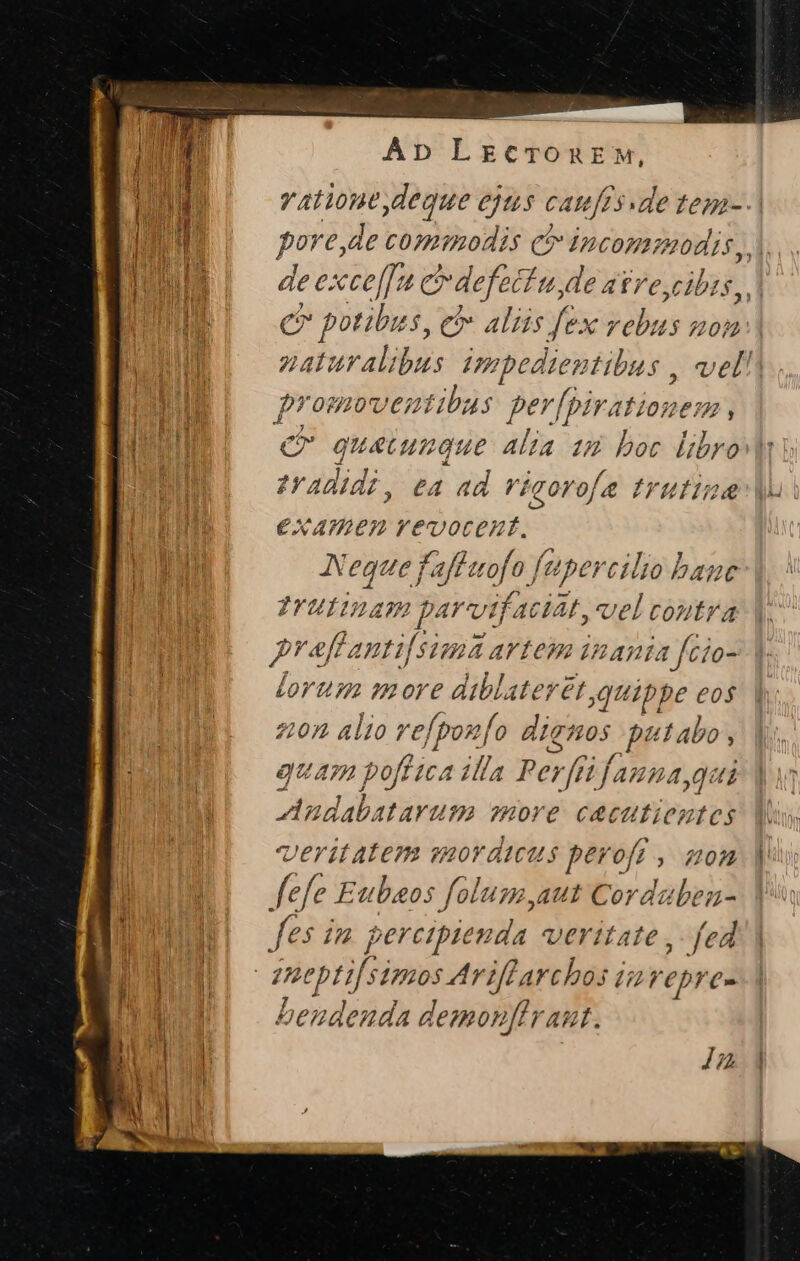 AD LECTOREM,
ratione,deque ejus cauſis.de tem-
pore,de commodis & incommodis,
de exceſſu & defectu,de aëre,cibis,
& potibus, & aliis ſex rebus non
naturalibus impedientibus , vel
promoventibus perſpirationem ,
& quæcunque alia in hoc libro
tradidi, ea ad rigoroſæ trutinæ
examen revocent.
Neque faſtuoſo ſupercilio hanc
trutinam parvifaciāt,vel contra
præſtantiſsimā artem inania ſcio-
lorum more diblaterēt,quippe eos
non alio reſponſo dignos putabo,
quam poſtica illa Perſii ſanna,qui
Andabatarum more cæcutientes
veritatem mordicus peroſi , non
ſeſe Eubæos ſolum,aut Corduben-
ſes in percipienda veritate , ſed
ineptiſsimos Ariſtarchos in repre-
hendenda demonſtrant.
In